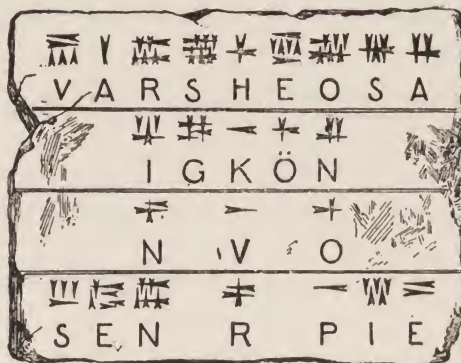 V A R S H E O S A
I G K Ö N
N V O
S E N R P I E